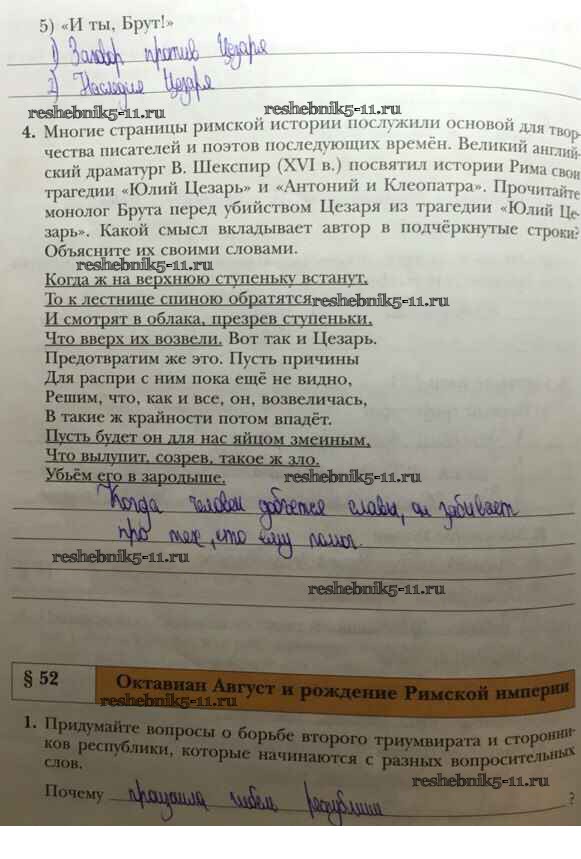 5) «И ты, Брут!»
1) Заговор против Цезаря
2) Наследие Цезаря
reshebnik5-11.ru reshebnik5-11.ru
4. Многие страницы римской истории послужили основой для твор-
чества писателей и поэтов последующих времён. Великий англий-
ский драматург В. Шекспир (XVI в.) посвятил истории Рима свои
трагедии «Юлий Цезарь» и «Антоний и Клеопатра». Прочитайте
монолог Брута перед убийством Цезаря из трагедии «Юлий Це-
зарь». Какой смысл вкладывает автор в подчёркнутые строки?
Объясните их своими словами.
reshebnik5-11.ru
Когда ж на верхнюю ступеньку встанут,
То к лестнице спиною обратятся
reshebnik5-11.ru
И смотрят в облака, презрев ступеньки,
Что вверх их возвели. Вот так и Цезарь.
Предотвратим же это. Пусть причины
Для распри с ним пока ещё не видно,
Решим, что, как и все, он, возвеличась,
В такие ж крайности потом впадёт.
Пусть будет он для нас яйцом змеиным,
Что вылупит, созрев, такое ж зло.
Убьём его в зародыше.
reshebnik5-11.ru
Когда человек добьется славы, он забывает
про тех, кто ему помог.
reshebnik5-11.ru
reshebnik5-11.ru
§ 52 Октавиан Август и рождение Римской империи
reshebnik5-11.ru
1. Придумайте вопросы о борьбе второго триумвирата и сторонни-
ков республики, которые начинаются с разных вопросительных
слов.
reshebnik5-11.ru
Почему произошла гибель республики ?